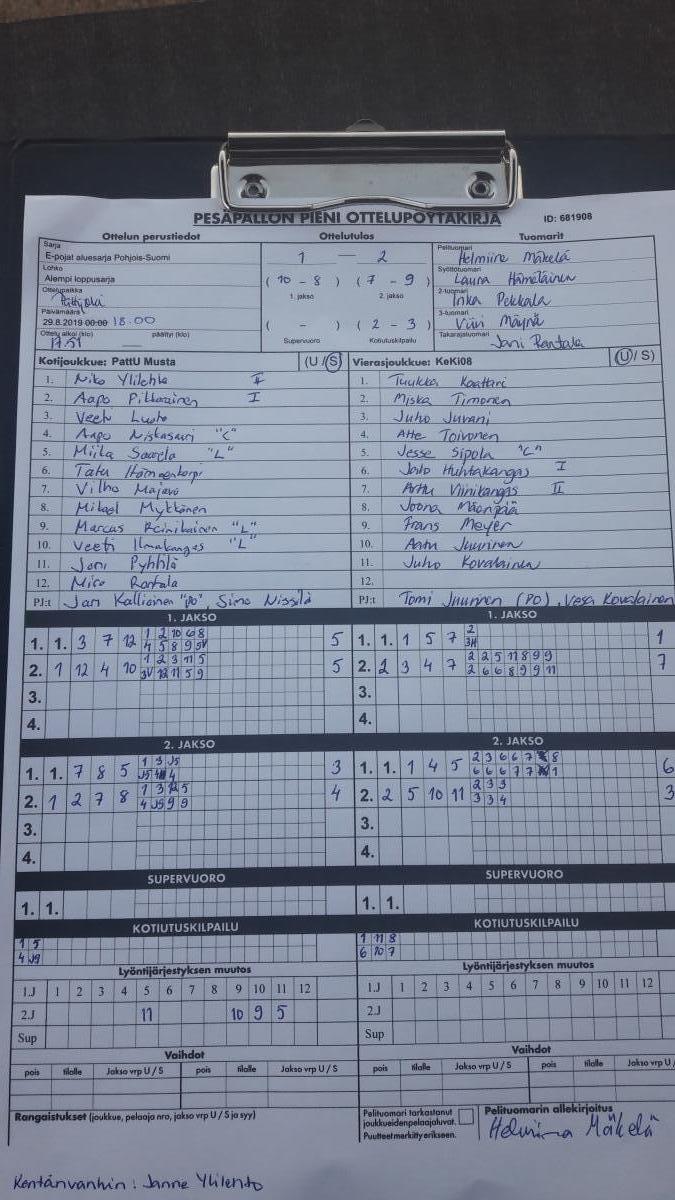 PESÄPALLON PIENI OTTELUPÖYTÄKIRJA ID: 681908
Ottelun perustiedot Ottelutulos Tuomarit
Sarja
E-pojat aluesarja Pohjois-Suomi
Lohko
Alempi loppusarja
Ottelupaikka
Päivämäärä
29.8.2019 00:00 18.00
Ottelu alkoi (klo) päättyi (klo)
17.51
1 — 2
( 10 - 8 ) ( 7 - 9 )
1. jakso 2. jakso
( - ) ( 2 - 3 )
Supervuoro Kotiutuskilpailu
Pelituomari
Helmiina Mäkelä
Syöttötuomari
Laura Hämeläinen
2-tuomari
Inka Pekkala
3-tuomari
Viivi Mäynä
Takarajatuomari
Jani Rantala
Kotijoukkue: PattU Musta (U / S)
1. Niko Ylilehto II
2. Aapo Pitkäräinen I
3. Veeti Luoto
4. Aapo Niskasaari "C"
5. Miila Saarela "L"
6. Tatu
7. Vilho Majava
8. Mikael Mykkänen
9. Marcus Reinikainen "L"
10. Veeti Ilmakangas "L"
11. Joni Pyhtilä
12. Mico Rantala
PJ:t Jari Kallioinen "PO", Simo Nissilä
Vierasjoukkue: KeKi08 (U / S)
1. Tuukka Kaattari
2. Miska Timonen
3. Juho Juvani
4. Atte Toivonen
5. Jesse Sipola "C"
6. Huhtakangas I
7. Arttu Viinikangas II
8. Joona Määnpää
9. Frans Meyer
10. Aatu Juurinen
11. Juho Kovalainen
12.
PJ:t Tomi Juurinen (PO), Vesa Kovalainen
1. JAKSO
1. 1. 3 7 12 1 2 10 6 8 5
4 5 8 9 5V
2. 1 12 4 10 1 2 3 11 5 5
3V 12 11 5 9
3.
4.
1. JAKSO
1. 1. 1 5 7 2 1
3H
2. 2 3 4 7 2 2 5 11 8 9 9 7
2 6 6 8 9 9 11
3.
4.
2. JAKSO
1. 1. 7 8 5 1 3 J5 3
J5 4
2. 1 2 7 8 1 3 12 5 4
4 J5 9 9
3.
4.
2. JAKSO
1. 1. 1 4 5 2 3 6 6 7 8 6
6 6 6 7 7 1
2. 2 5 10 11 2 3 3 3
3 3 4
3.
4.
SUPERVUORO
1. 1.
SUPERVUORO
1. 1.
KOTIUTUSKILPAILU
1 5
4 J9
KOTIUTUSKILPAILU
1 11 8
6 10 7
Lyöntijärjestyksen muutos
1.J 1 2 3 4 5 6 7 8 9 10 11 12
2.J 11 10 9 5
Sup
Lyöntijärjestyksen muutos
1.J 1 2 3 4 5 6 7 8 9 10 11 12
2.J
Sup
Vaihdot
pois tilalle Jakso vrp U / S pois tilalle Jakso vrp U / S
Vaihdot
pois tilalle Jakso vrp U / S pois tilalle Jakso vrp U
Rangaistukset (joukkue, pelaaja nro, jakso vrp U / S ja syy)
Pelituomari tarkastanut
joukkueidenpelaajaluvat.
Puutteet merkitty erikseen.
Pelituomarin allekirjoitus
Helmiina Mäkelä
Kentänvanhin: Janne Ylilehto